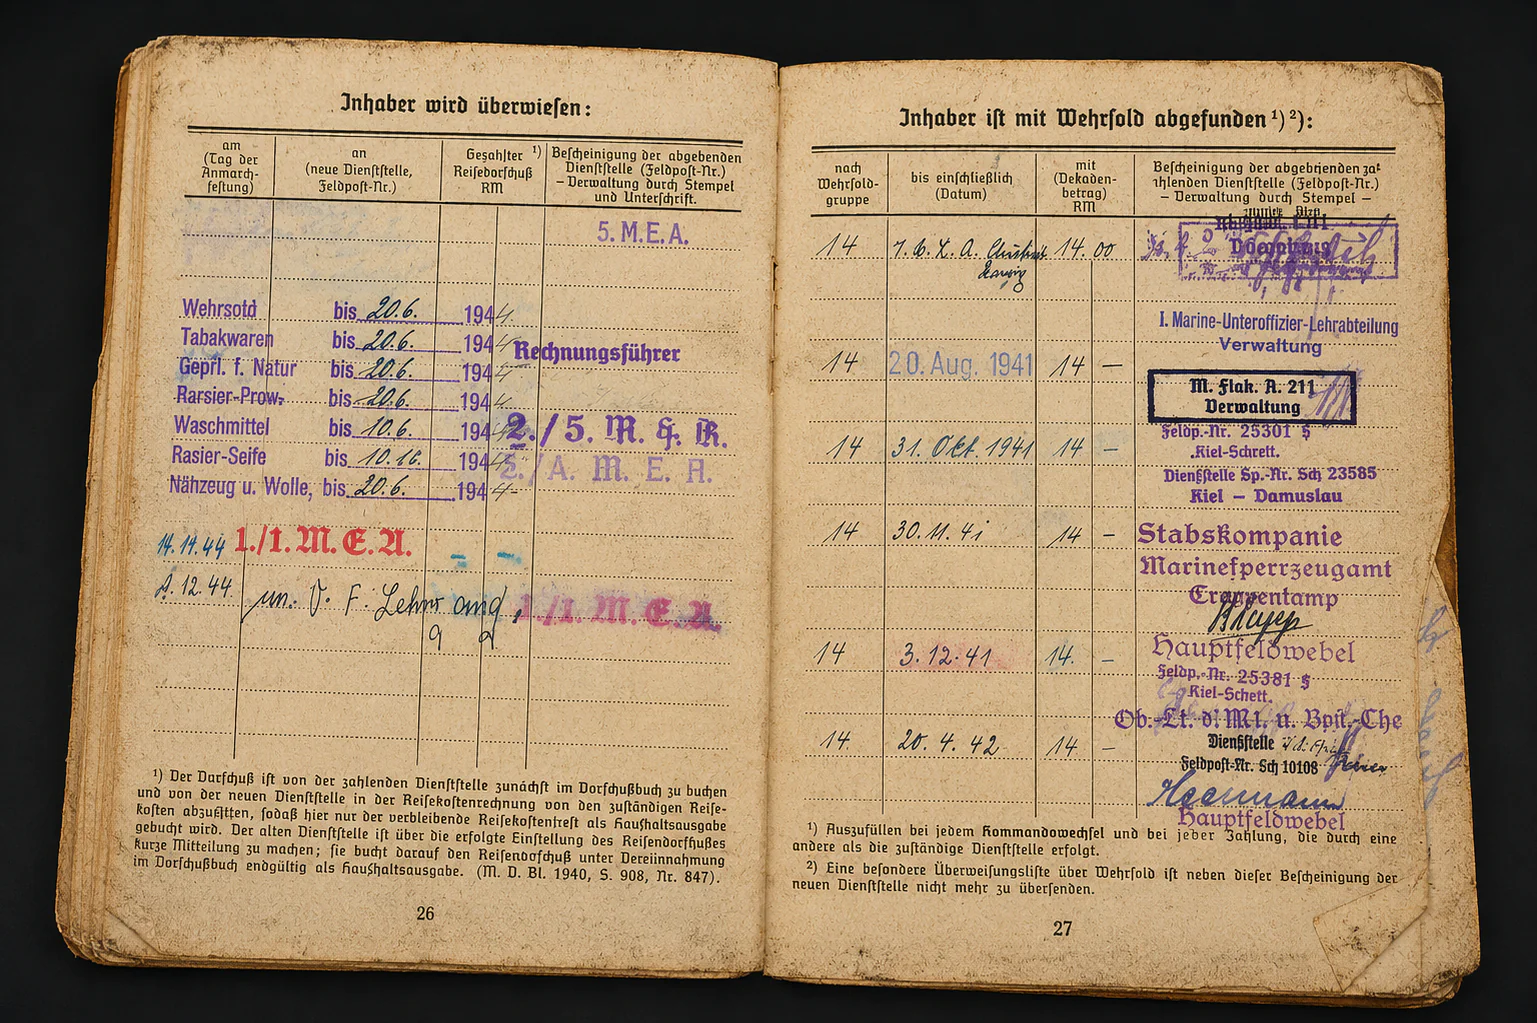 Inhaber wird überwiesen:
am
(Tag der
Anmarch-
feſtung)
an
(neue Dienſtſtelle,
Feldpoſt-Nr.)
Geſahlter ¹)
Reiſedorſchuß
RM
Beſcheinigung der abgebenden
Dienſtſtelle (Feldpoſt-Nr.)
– Verwaltung durch Stempel
und Unterſchrift.
5. M.E.A.
Wehrsotd bis 20.6. 1944
Tabakwaren bis 20.6. 194
Rechnungsführer
Geprl. f. Natur bis 20.6. 194
Rarsier-Prow. bis 20.6. 194
Waschmittel bis 10.6. 194
2./5. M. & R.
Rasier-Seife bis 194
2./A. M. E. A.
Nähzeug u. Wolle, bis 20.6. 1944
14.14.44 1./1. M. E. A.
12.44
1./1. M. E. A.
¹) Der Darſchuß iſt von der zahlenden Dienſtſtelle zunächſt im Dorſchußbuch zu buchen
und von der neuen Dienſtſtelle in der Reiſekoſtenrechnung von den zuſtändigen Reiſe-
koſten abzuſetten, ſodaß hier nur der verbleibende Reiſekoſtenreſt als Haußhaltsausgabe
gebucht wird. Der alten Dienſtſtelle iſt über die erfolgte Einſtellung des Reiſendorſhußes
kurze Mitteilung zu machen; ſie bucht darauf den Reiſendoſchuß unter Dereiinnahmung
im Dorſchußbuch endgültig als Haußhaltsausgabe. (M. D. Bl. 1940, S. 908, Nr. 847).
26
Inhaber iſt mit Wehrſold abgefunden ¹) ²):
nach
Wehrſold-
gruppe
bis einſchließlich
(Datum)
mit
(Dekaden-
betrag)
RM
Beſcheinigung der abgebrienden zat
ihlenden Dienſtſtelle (Feldpoſt-Nr.)
– Derwaltung durch Stempel –
14 14.00
I. Marine-Unteroffizier-Lehrabteilung
Verwaltung
14 20. Aug. 1941 14 –
M. Flak. A. 211
Derwaltung
Feldp.-Nr. 25301 §
14 31. Okt. 1941 14 –
Kiel-Schrett.
Dienſtſtelle Sp.-Nr. Sch 23585
Kiel – Damuslau
14 30.11.41 14 –
Stabskompanie
Marineſperrzeugamt
Crappentamp
Hauptfeldwebel
14 3.12.41 14. –
Feldp.-Nr. 25381 §
Kiel-Schett.
Ob.-Lt. d. Mt. u. Bpit.-Che
14. 20.4.42 14 –
Dienſtſtelle
Feldpoſt-Nr. Sch 10108
Heermann
Hauptfeldwebel
¹) Auszufüllen bei jedem Kommandowechſel und bei jeber Zahlung, die durch eine
andere als die zuſtändige Dienſtſtelle erfolgt.
²) Eine beſondere Überweiſungsliſte über Wehrſold iſt neben dieſer Beſcheinigung der
neuen Dienſtſtelle nicht mehr zu überſenden.
27